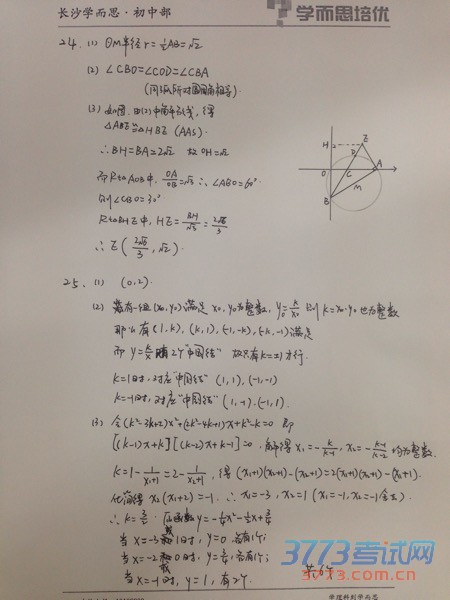 长沙学而思·初中部
学而思培优
24. (1) ⊙M半径 r=½AB=√2
(2) ∠CBO=∠COD=∠CBA
(同弧所对圆周角相等)
(3) 如图,由(2)中角平分线,得
△ABE≌△HBE (AAS).
∴BH=BA=2√2 故OH=√2
而Rt△AOB中, OA/OB=√3 ∴∠ABO=60°
则∠CBO=30°
Rt△BHE中, HE=BH/√3=2√6/3
∴E(2√6/3, √2).
H E D O C A M B
25. (1) (0,2).
(2) 若有一组(x₀,y₀)满足x₀,y₀为整数, y₀=k/x₀ 则k=x₀·y₀也为整数
那么有(1,k), (k,1), (-1,-k), (-k,-1)满足
而y=k/x 有2个"中国结" 故只有k=±1才行.
k=1时,对应"中国结" (1,1), (-1,-1)
k=-1时,对应"中国结" (1,-1), (-1,1).
(3) 令(k²-3k+2)x²+(2k²-4k+1)x+k²-k=0 即
[(k-1)x+k][(k-2)x+k-1]=0. 解得x₁=-k/(k-1), x₂=-(k-1)/(k-2) 均为整数.
k=1-1/(x₁+1)=2-1/(x₂+1), 得(x₁+1)(x₂+1)-(x₂+1)=2(x₁+1)(x₂+1)-(x₁+1).
化简得 x₂(x₁+2)=-1. ∴x₁=-3, x₂=1 (x₁=-1, x₂=-1舍去)
∴k=3/2. 原函数y=-¼x²-½x+¾
当x=-3或1时, y=0.各有1个;
当x=-2或0时, y=¾,各有1个;
当x=-1时, y=1, 有2个.
共6个
3773考试网
www.3773.com.cn
学理科到学而思